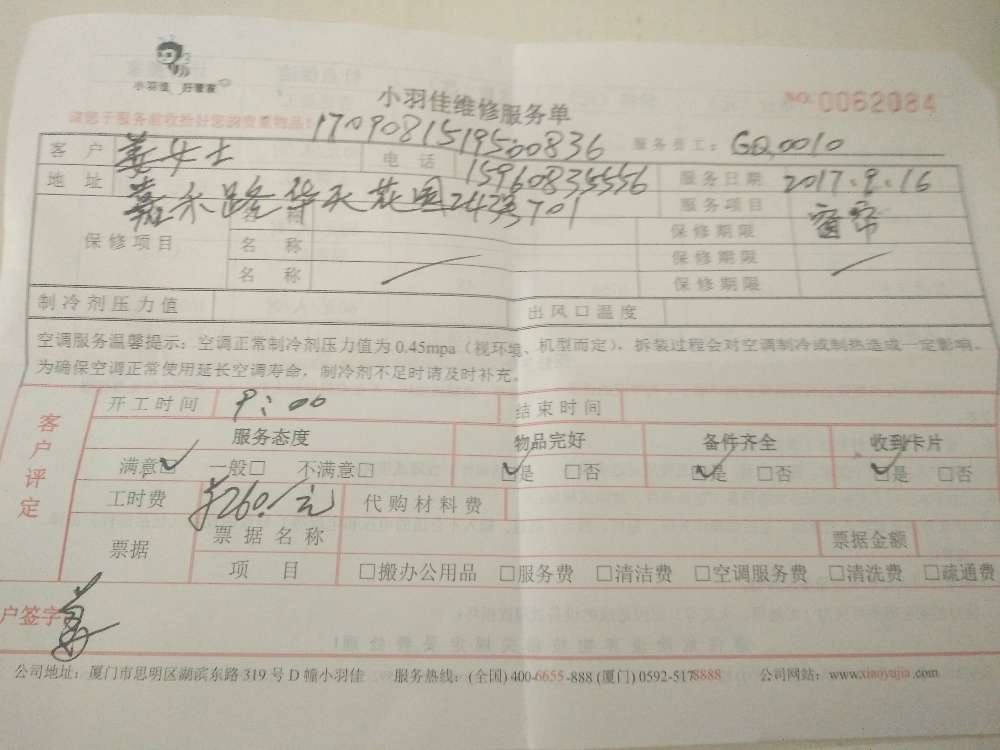 小羽佳 好管家
小羽佳维修服务单
NO.0062084
请您于服务前收拾好您的贵重物品!
170908151950836
服务员工: GQ0010
客户 姜女士 电话 15960835556 服务日期 2017.9.16
地址 嘉禾路华天花园242号701 服务项目 窗帘
保修项目 名称 保修期限
名称 保修期限
名称 保修期限
制冷剂压力值 出风口温度
空调服务温馨提示:空调正常制冷剂压力值为0.45mpa(视环境、机型而定),拆装过程会对空调制冷或制热造成一定影响。
为确保空调正常使用延长空调寿命,制冷剂不足时请及时补充。
客户评定
开工时间 9:00 结束时间
服务态度 物品完好 备件齐全 收到卡片
满意☑ 一般□ 不满意□ ☑是 □否 ☑是 □否 ☑是 □否
工时费 ¥260/元 代购材料费
票据 票据名称 票据金额
项目 □搬办公用品 □服务费 □清洁费 □空调服务费 □清洗费 □疏通费
户签字 姜
公司地址:厦门市思明区湖滨东路319号D幢小羽佳 服务热线:(全国)400-6655-888 (厦门)0592-5178888 公司网站:www.xiaoyujia.com